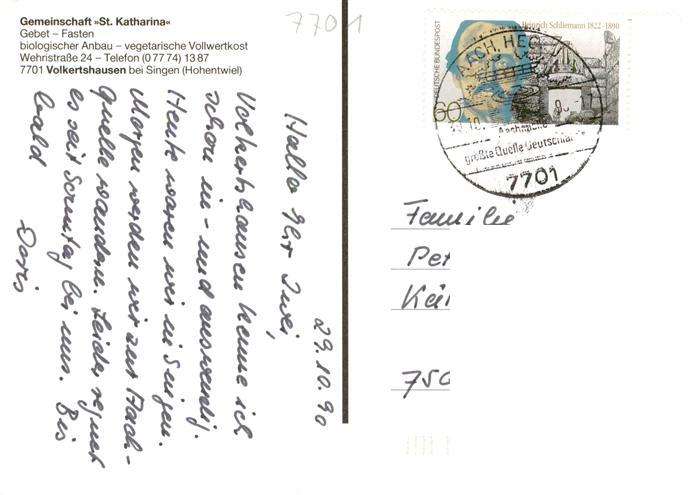 Gemeinschaft »St. Katharina«
Gebet – Fasten
biologischer Anbau – vegetarische Vollwertkost
Wehristraße 24 – Telefon (0 77 74) 13 87
7701 Volkertshausen bei Singen (Hohentwiel)
7701
29.10.90
Hallo Ihr Zwei,
Volkertshausen kenne ich
schon in- und auswendig.
Heute waren wir in Singen.
Morgen werden wir zur Aach-
quelle wandern. Leider regnet
es seit Sonntag bei uns. Bis
bald
Doris
DEUTSCHE BUNDESPOST
Heinrich Schliemann 1822-1890
60
AACH, HEG
Aachquelle
größte Quelle Deutschlands
7701
Familie
Pet
Käl
750